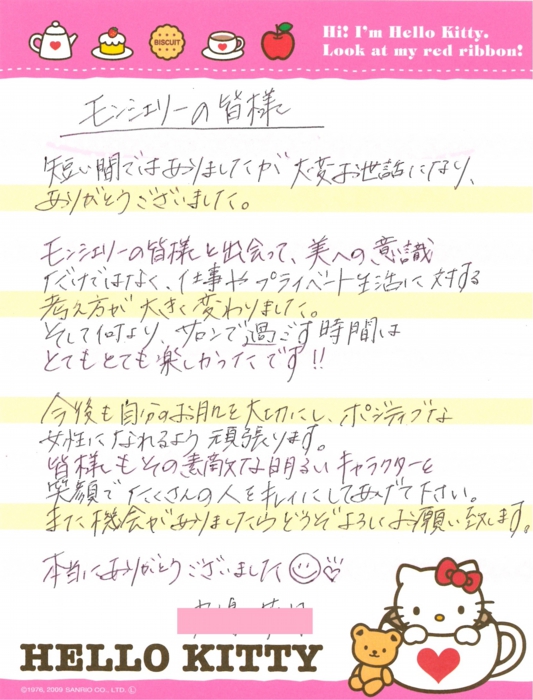 Hi! I'm Hello Kitty.
Look at my red ribbon!
BISCUIT
モンシェリーの皆様
短い間ではありましたが 大変お世話になり、
ありがとうございました。
モンシェリーの皆様と出会って、美への意識
だけではなく、仕事やプライベート生活に対する
考え方が大きく変わりました。
そして何より、サロンで過ごす時間は
とてもとても楽しかったです!!
今後も自分のお肌を大切にし、ポジティブな
女性になれるよう頑張ります。
皆様もその素敵な明るいキャラクターと
笑顔でたくさんの人をキレイにしてあげて下さい。
また機会がありましたらどうぞよろしくお願い致します。
本当にありがとうございました
HELLO KITTY
©1976, 2009 SANRIO CO., LTD. Ⓛ